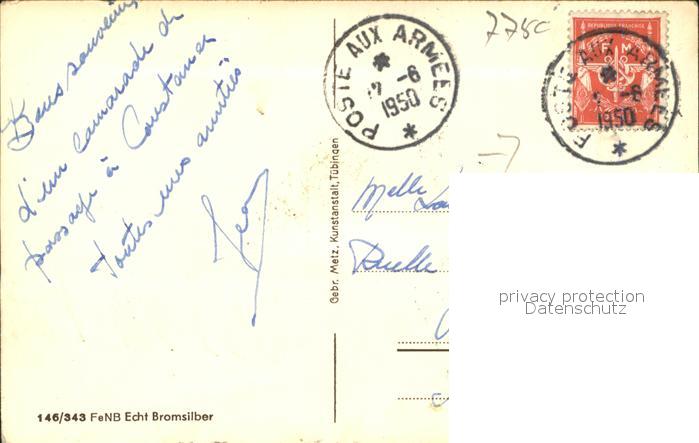 Bons souvenirs
d'un camarade de
passage à Constance
Toutes mes amitiés
Jean
146/343 FeNB Echt Bromsilber
Gebr. Metz, Kunstanstalt, Tübingen
POSTE AUX ARMÉES
-6
1950
REPUBLIQUE FRANCAISE
F M
POSTE AUX ARMEES
-6
1950
Melle
privacy protection
Datenschutz